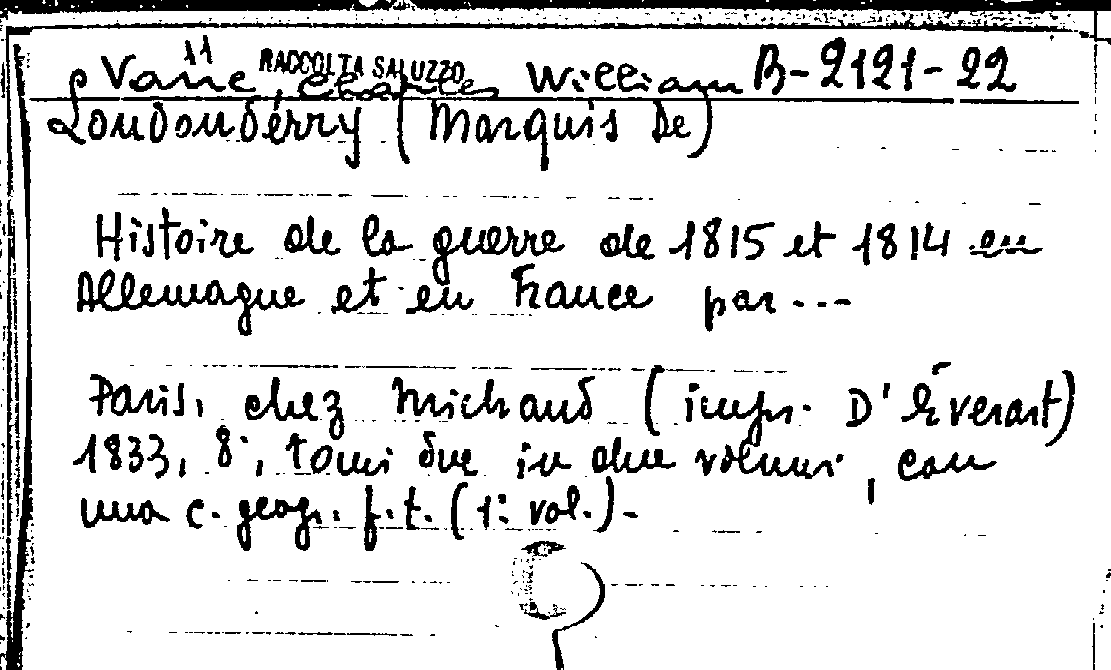 11 RACCOLTA SALUZZO
Vane, Charles William B-2121-22
Londondérry (Marquis De)
Histoire de la guerre de 1815 et 1814 en
Allemagne et en France par ---
Paris, chez Michaud (impr. D'Éverart)
1833, 8°, tomi due in due volumi, con
una c. geogr. f.t. (1° vol.)-